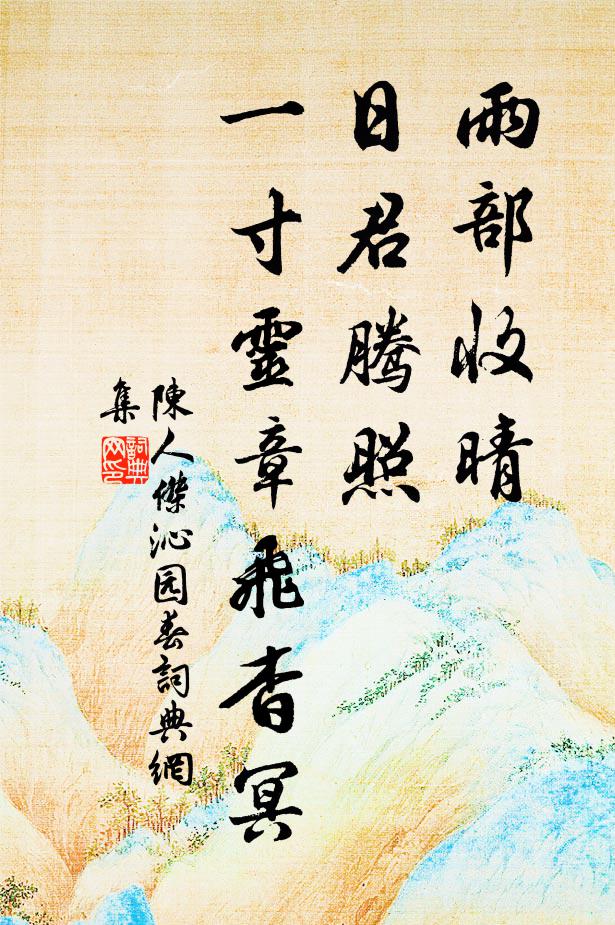 雨部收晴
日君腾照
一寸靈章飛杳冥
陳人傑沁园春詞典網
集
詞典
网印